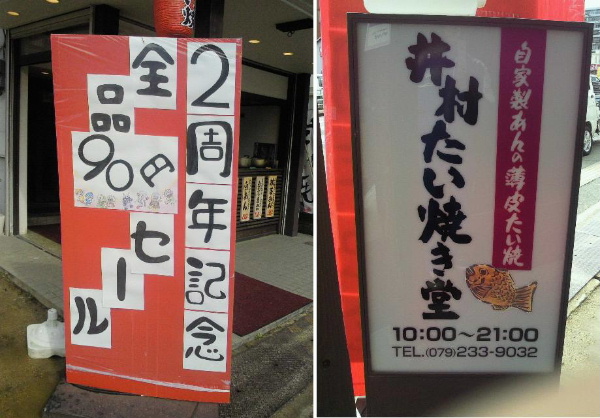 2周年記念
全品90円セール
自家製あんの薄皮たい焼
井村たい焼き堂
10:00～21:00
TEL.(079)233-9032